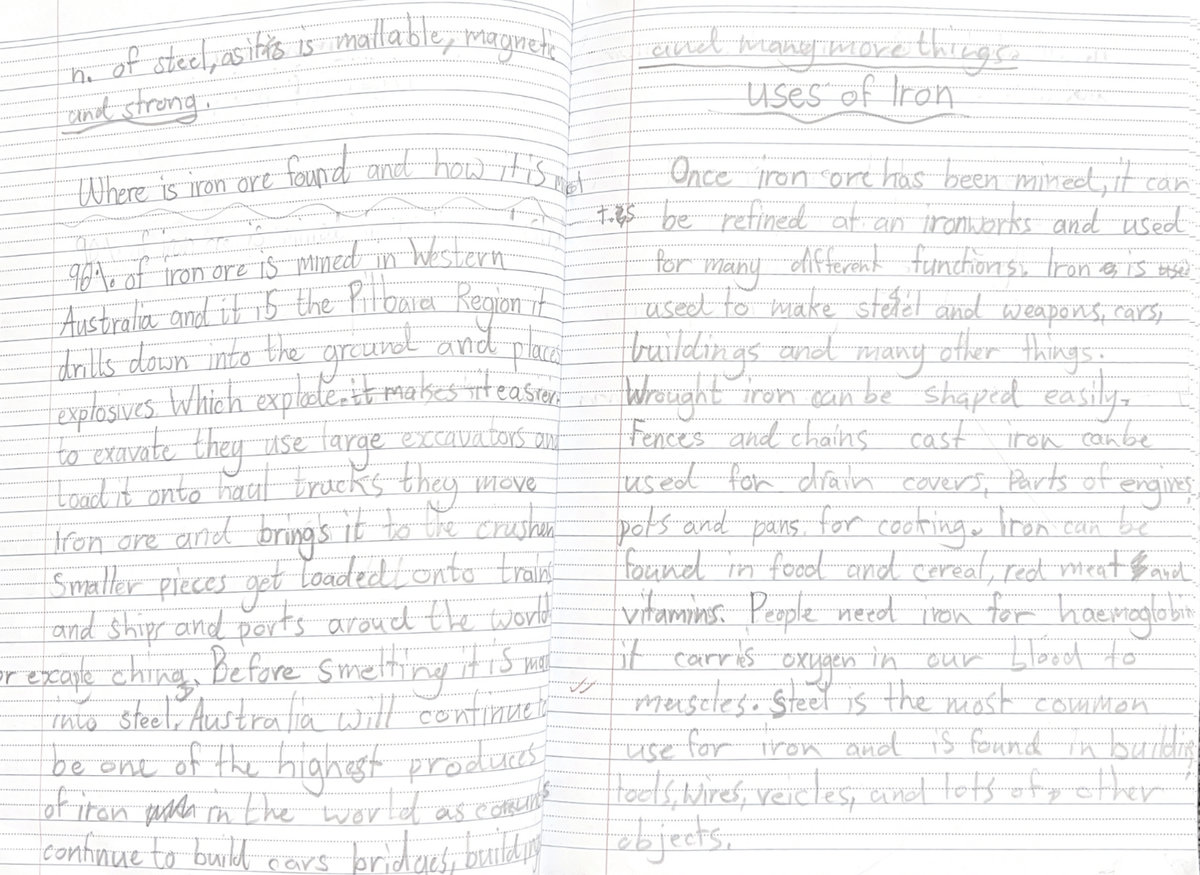 n. of steel, as it is is mallable, magnetic
and strong.
Where is iron ore found and how it is
96% of iron ore is mined in Western
Australia and it is the Pilbara Region it
drills down into the ground and places
explosives. Which explode. it makes it easier
to exavate they use large excavators an
load it onto haul trucks they move
iron ore and brings it to the crusher
smaller pieces get loaded onto train
and ships and ports aroud the world
or excaple china. Before smelting it is ma
into steel. Australia will continue t
be one of the highest produces
of iron in the world as
continue to build cars bridges, building
and many more things.
uses of Iron
Once iron ore has been mined, it can
be refined at an ironworks and used
for many different functions. Iron is
used to make steel and weapons, cars,
buildings and many other things.
Wrought iron can be shaped easily.
Fences and chains cast iron canbe
used for drain covers, Parts of engines
pots and pans for cooking. Iron can be
found in food and cereal, red meat and
vitamins. People need iron for haemoglobin
it carris oxygen in our blood to
muscles. Steel is the most common
use for iron and is found in buildin
tools, wires, veicles, and lots of other
objects.